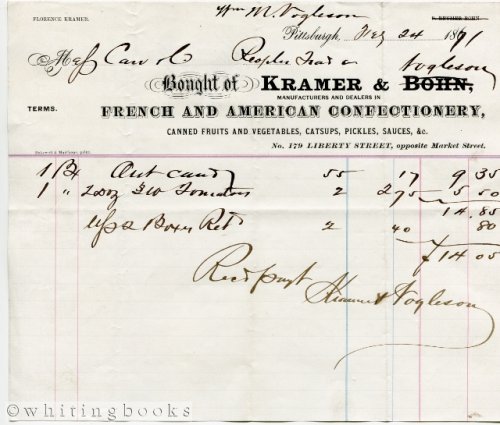 Wm M. Vogleson
FLORENCE KRAMER.
S. BECHER BOHN.
Pittsburgh, Feby 24 1871
Mess Caw & Co
Peoples Trad
Vogleson
Bought of KRAMER & BOHN,
MANUFACTURERS AND DEALERS IN
TERMS. FRENCH AND AMERICAN CONFECTIONERY,
CANNED FRUITS AND VEGETABLES, CATSUPS, PICKLES, SAUCES, &c.
No. 179 LIBERTY STREET, opposite Market Street.
1 Bx Cut candy 55 17 9 35
1 " 2 Doz Tomatoes 2 275 5 50
14.85
2 Boxes Ret 2 40 80
$14 05
Recd payt Kramer & Vogleson
©whitingbooks